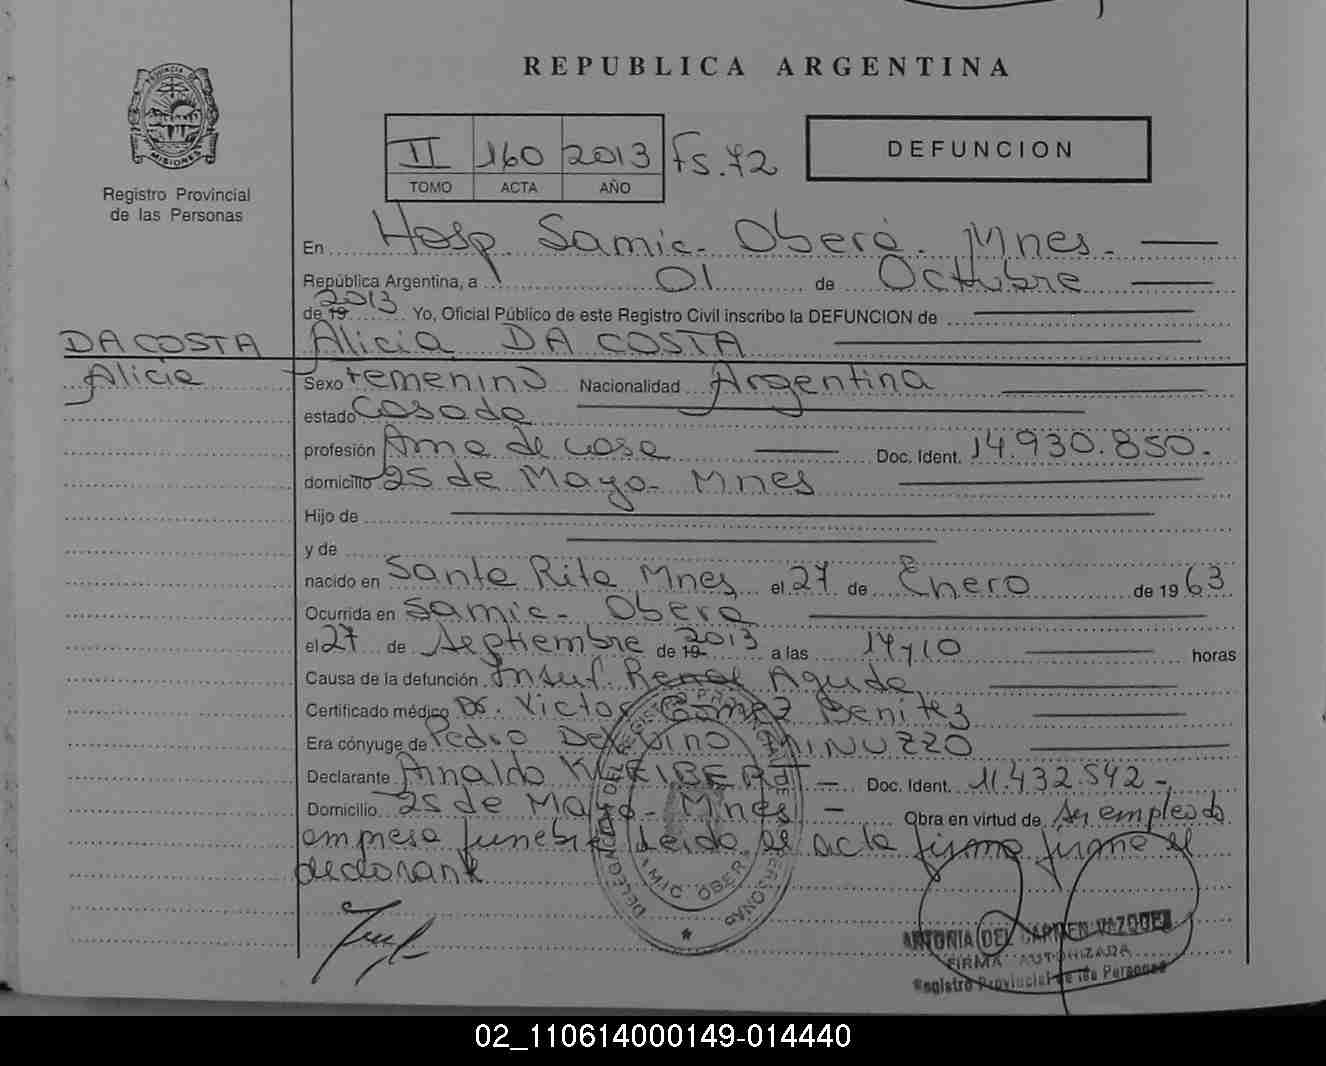 REPUBLICA ARGENTINA
PROVINCIA DE
MISIONES
Registro Provincial
de las Personas
II 160 2013 Fs. 72
TOMO ACTA AÑO
DEFUNCION
En Hosp Samic - Oberá - Mnes -
República Argentina, a 01 de Octubre
de 19 2013 Yo, Oficial Público de este Registro Civil inscribo la DEFUNCION de
DA COSTA Alicia DA COSTA
Alicia
Sexo Femenino Nacionalidad Argentina
estado Casada
profesión Ama de casa Doc. Ident. 14.930.850.
domicilio 25 de Mayo - Mnes
Hijo de
y de
nacido en Santa Rita Mnes, el 27 de Enero de 1963
Ocurrida en Samic - Obera
el 27 de Septiembre de 19 2013 a las 14y10 horas
Causa de la defunción Insuf. Renal Aguda
Certificado médico Dr. Victor Gomez Benitez
Era cónyuge de Pedro MINUZZO
Declarante Arnaldo Doc. Ident. 11.432.542 -
Domicilio 25 de Mayo - Mnes - Obra en virtud de ser empleado
empresa funebre leido el acta firma firma el
declarante
DELEGACION DEL REGISTRO PROVINCIAL DE PERSONAS
SAMIC OBERA
ANTONIA DEL CARMEN VAZQUEZ
FIRMA AUTORIZADA
Registro Provincial de las Personas
02_110614000149-014440